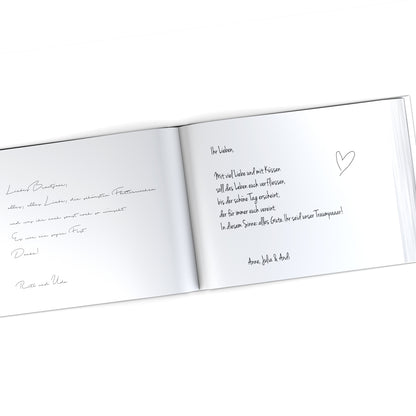 Liebes Brautpaar,
alles, alles Liebe, die schönsten Flitterwochen
und was ihr euch sonst noch so wünscht.
Es war ein super Fest.
Danke!
Ruth und Udo
Ihr Lieben,
Mit viel Liebe und mit Küssen
soll das Leben euch verfliessen,
bis der schöne Tag erscheint,
der für immer euch vereint.
In diesem Sinne: alles Gute. Ihr seid unser Traumpaar!
Anne, Julia & Andi